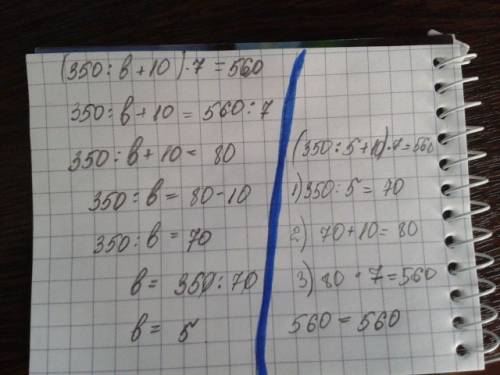 (350:в+10)·7=560
350:в+10=560:7
350:в+10=80
350:в=80-10
350:в=70
в=350:70
в=5
(350:5+10)·7=560
1)350:5=70
2) 70+10=80
3) 80·7=560
560=560